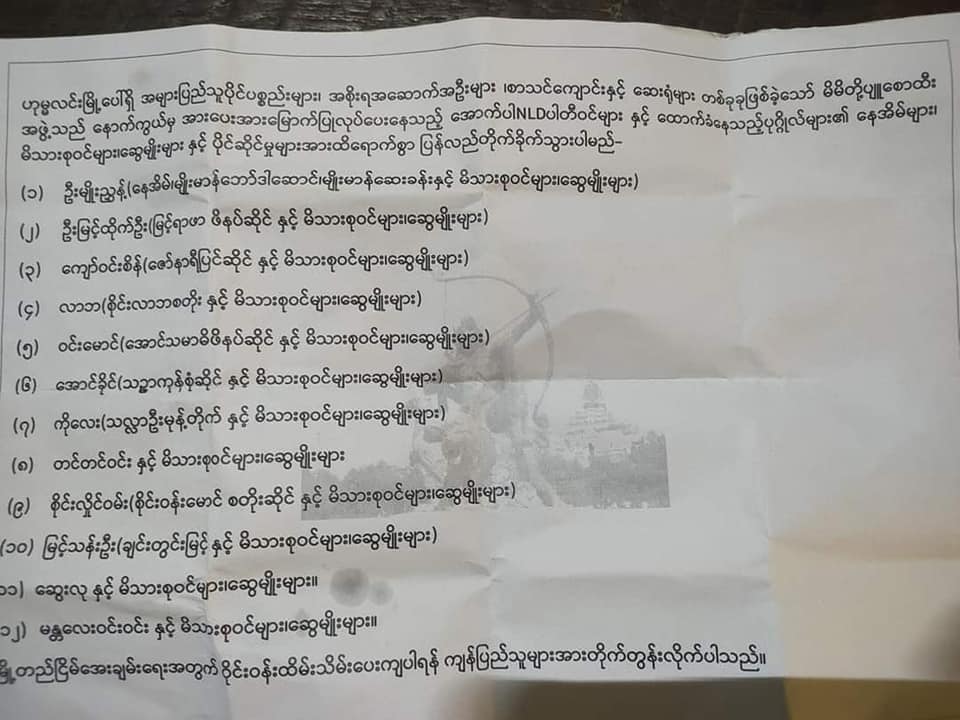 ဟုမ္မလင်းမြို့ပေါ်ရှိ အများပြည်သူပိုင်ပစ္စည်းများ၊ အစိုးရအဆောက်အဦးများ ၊စာသင်ကျောင်းနှင့် ဆေးရုံများ တစ်ခုခုဖြစ်ခဲ့သော် မိမိတို့ပျူစောထီး
အဖွဲ့သည် နောက်ကွယ်မှ အားပေးအားမြောက်ပြုလုပ်ပေးနေသည့် အောက်ပါNLDပါတီဝင်များ နှင့် ထောက်ခံနေသည့်ပုဂ္ဂိုလ်များ၏ နေအိမ်များ၊
မိသားစုဝင်များ၊ဆွေမျိုးများ နှင့် ပိုင်ဆိုင်မှုများအားထိရောက်စွာ ပြန်လည်တိုက်ခိုက်သွားပါမည်-
(၁) ဦးမျိုးညွှန့်(နေအိမ်၊မျိုးမာန်ဘော်ဒါဆောင်၊မျိုးမာန်ဆေးခန်းနှင့် မိသားစုဝင်များ၊ဆွေမျိုးများ)
(၂) ဦးမြင့်ထိုက်ဦး(မြင့်ရာဖာ ဖိနပ်ဆိုင် နှင့် မိသားစုဝင်များ၊ဆွေမျိုးများ)
(၃) ကျော်ဝင်းစိန်(ဇော်နာရီပြင်ဆိုင် နှင့် မိသားစုဝင်များ၊ဆွေမျိုးများ)
(၄) လာဘ(စိုင်းလာဘစတိုး နှင့် မိသားစုဝင်များ၊ဆွေမျိုးများ)
(၅) ဝင်းမောင်(အောင်သမာဓိဖိနပ်ဆိုင် နှင့် မိသားစုဝင်များ၊ဆွေမျိုးများ)
(၆) အောင်ခိုင်(သဉ္ဇာကုန်စုံဆိုင် နှင့် မိသားစုဝင်များ၊ဆွေမျိုးများ)
(၇) ကိုလေး(သလ္လာဦးမုန့်တိုက် နှင့် မိသားစုဝင်များ၊ဆွေမျိုးများ)
(၈) တင်တင်ဝင်း နှင့် မိသားစုဝင်များ၊ဆွေမျိုးများ
(၉) စိုင်းလှိုင်ဝမ်း(စိုင်းဝန်းမောင် စတိုးဆိုင် နှင့် မိသားစုဝင်များ၊ဆွေမျိုးများ)
(၁၀) မြင့်သန်းဦး(ချင်းတွင်းမြင့် နှင့် မိသားစုဝင်များ၊ဆွေမျိုးများ)
၁၁) ဆွေးလု နှင့် မိသားစုဝင်များ၊ဆွေမျိုးများ။
၁၂) မန္တလေးဝင်းဝင်း နှင့် မိသားစုဝင်များ၊ဆွေမျိုးများ။
မြို့တည်ငြိမ်အေးချမ်းရေးအတွက် ဝိုင်းဝန်းထိမ်းသိမ်းပေးကျပါရန် ကျန်ပြည်သူများအားတိုက်တွန်းလိုက်ပါသည်။